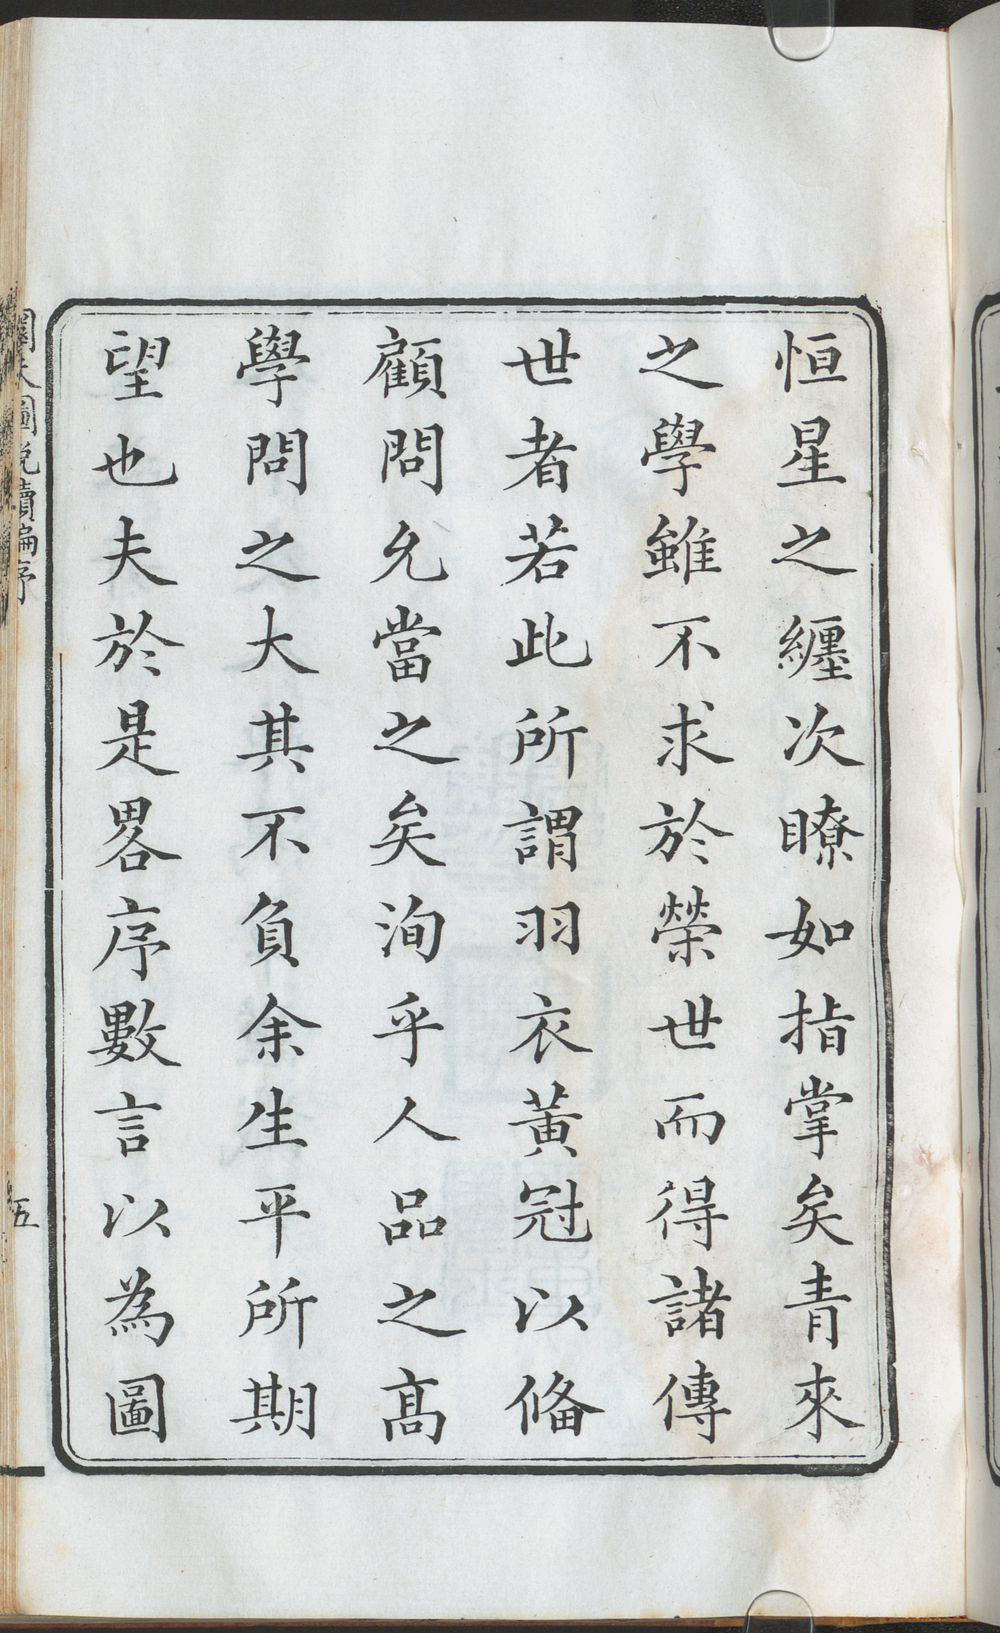 恒星之纏次瞭如指掌矣青來
之學雖不求於榮世而得諸傳
世者若此所謂羽衣黃冠以俻
顧問允當之矣洵乎人品之高
學問之大其不負余生平所期
望也夫於是畧序數言以為圖
圜天圖說續編序
五